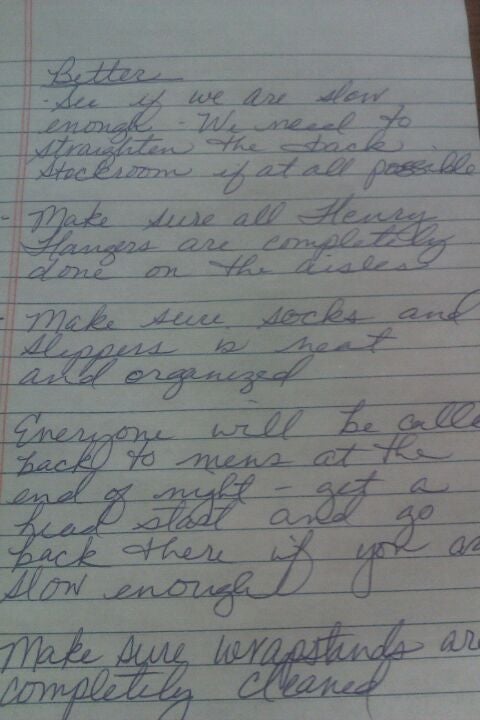 Better
- See if we are slow
enough - We need to
straighten the back
stockroom if at all possible
- Make sure all Henry
Hangers are completely
done on the aisles
- Make sure socks and
slippers is neat
and organized
Everyone will be calle
back to mens at the
end of night - get a
head start and go
back there if you a
slow enough
Make sure wrapstands are
completely cleaned